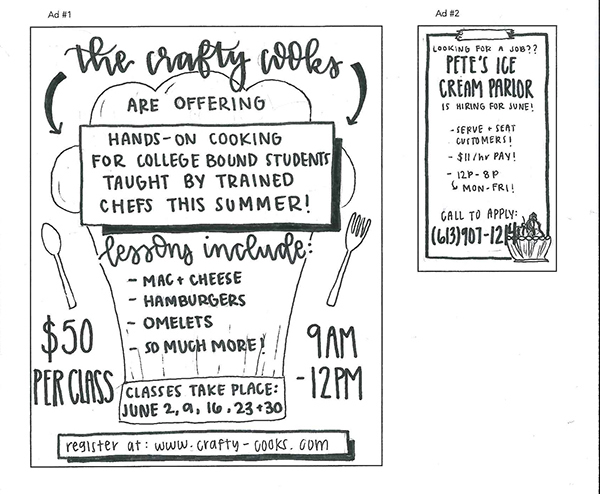 Ad #1
the crafty cooks
ARE OFFERING
HANDS-ON COOKING
FOR COLLEGE BOUND STUDENTS
TAUGHT BY TRAINED
CHEFS THIS SUMMER!
lessons include:
- MAC + CHEESE
- HAMBURGERS
- OMELETS
- SO MUCH MORE!
$50
PER CLASS
9AM
-12PM
CLASSES TAKE PLACE:
JUNE 2, 9, 16, 23 + 30
register at: www.crafty-cooks.com
Ad #2
LOOKING FOR A JOB??
PETE'S ICE
CREAM PARLOR
IS HIRING FOR JUNE!
- SERVE + SEAT
CUSTOMERS!
- $11/hr PAY!
- 12P - 8P
MON-FRI!
CALL TO APPLY:
(613)907-1214